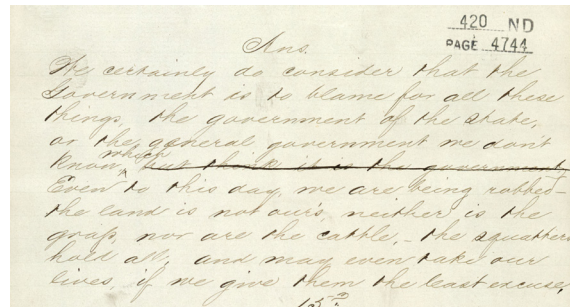 420 ND
PAGE 4744
Ans.
We certainly do consider that the
Government is to blame for all these
things, the government of the state,
or the general government we don't
know which but think it is the government,
Even to this day, we are being robbed –
the land is not our's, neither is the
grass, nor are the cattle, – the squatters
hold all, and may even take our
lives, if we give them the least excuse,
15th